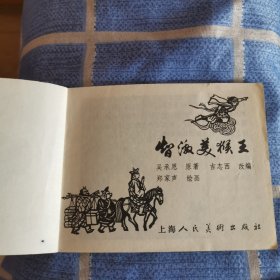 智激美猴王
吴承恩 原著 吉志西 改编
郑家声 绘画
上海人民美術出版社